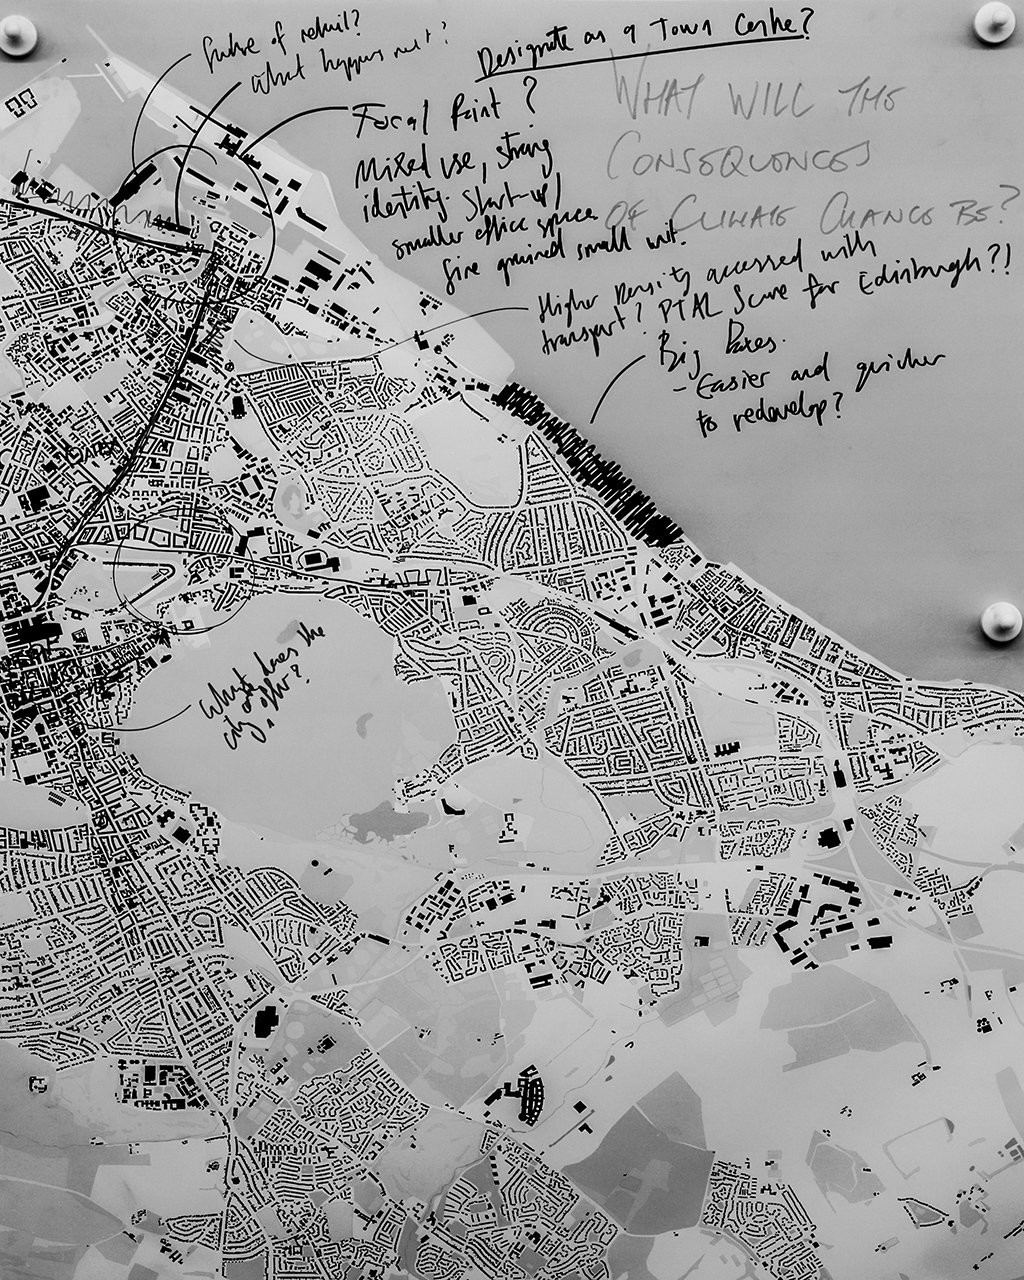 Future of retail?
What happens next?
Designate as a Town Centre?
WHAT WILL THE
CONSEQUENCES
OF CLIMATE CHANGE BE?
Focal Point?
Mixed use, strong
identity. Start-up/
smaller office space
fine grained small unit.
Higher Density accessed with
transport? PTAL Score for Edinburgh?!
Big Boxes.
- Easier and quicker
to redevelop?
What does the
city offer?